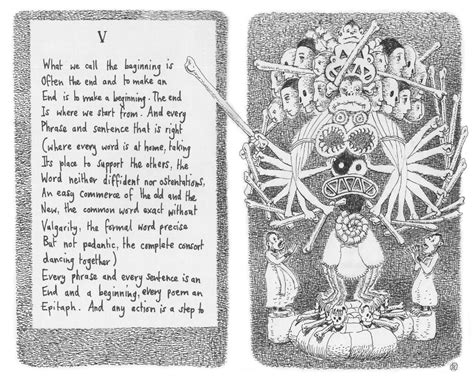 V
What we call the beginning is
Often the end and to make an
End is to make a beginning. The end
Is where we start from. And every
Phrase and sentence that is right
(where every word is at home, taking
Its place to support the others, the
Word neither diffident nor ostentatious,
An easy commerce of the old and the
New, the common word exact without
Vulgarity, the formal word precise
But not pedantic, the complete consort
dancing together)
Every phrase and every sentence is an
End and a beginning, every poem an
Epitaph. And any action is a step to